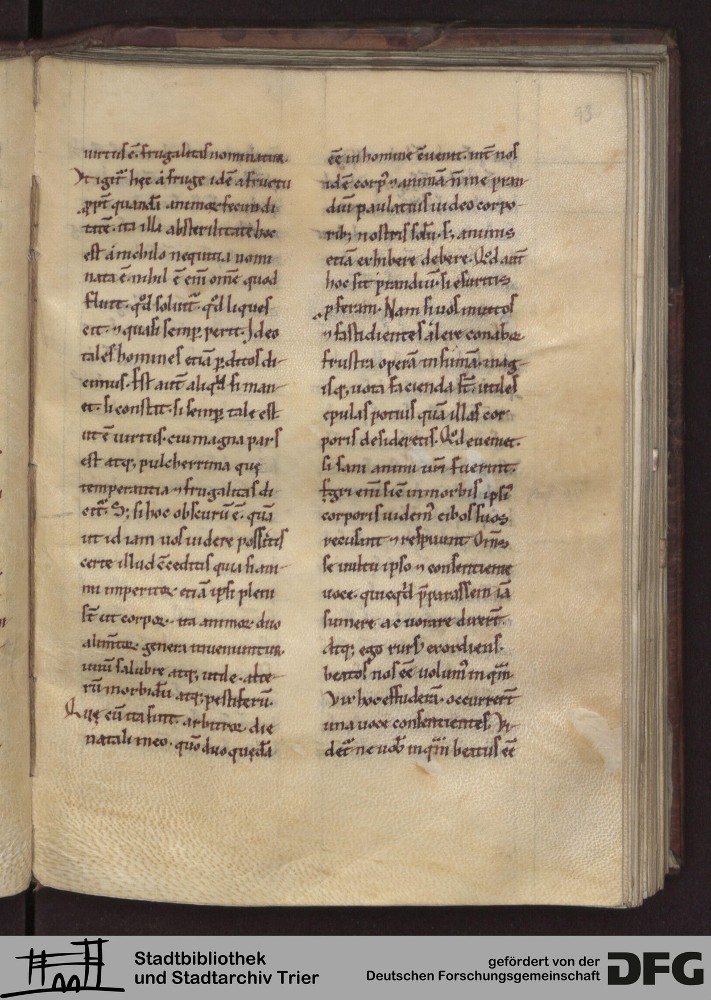 uirtus ē. frugalitas nominatur.
Vt igit͛ hęc á fruge idē a fructu
ꝓpt̄ quandā animor fecundi
tatē. ita illa ab sterilitate hoc
est á nichilo nequitia nomi
nata ē. nihil ē enī om̄e quod
fluit. qđ soluit͛. qđ liques
cit. ⁊ quasi semꝑ perit. Ideo
tales homines etiā ꝑditos di
cimus. Est aut̄ aliqđ si man
et. si constit. si semꝑ tale est
ut ē uirtus. cui magna pars
est atq; pulcherrima quę
temperantia ⁊ frugalitas di
cit͛. S; si hoc obscurū ē. quā
ut id iam uos uidere possitis
certe illud cceditis quia si ani
mi imperitor etiā ipsi pleni
st̄ ut corpor. ita animor duo
alimtor genera inueniuntur.
unū salubre atq; utile. alte
rū morbidū atq; pestiferū.
Quę cū ita sunt. arbitror die
natali meo. quō duo quędā
eē in homine cuenit. int̄ nos
idē corpꝰ ⁊ animā n̄ me pran
diū paulatius uideo corpo
rib; nostris solū. s; animis
etiā exhibere debere. Qđ aut̄
hoc sit prandiū. si esuritis
ꝓferam. Nam si uos inuitos
⁊ fastidientes alere conabor
frustra operā insumā. mag
isq; uota facienda st̄. ut tales
epulas potius quā illas cor
poris desideretis. Qđ eueniet.
si sani animi ur̄i fuerint.
Egri enī sic in morbis ipsiꝰ
corporis uidem cibos suos
recusant ⁊ respuunt. Om̄s
se uultu ipso ⁊ consentiente
uoce. quicqđ p̄parassem iā
sumere ac uorare dixert̄.
Atq; ego rursꝰ exordiens.
beatos nos eē volumꝰ inquā.
Vix hoc effuderā. occurrert̄
una uoce consentientes. Vi
det͛ ne uob inquā beatus eē
93
Stadtbibliothek
und Stadtarchiv Trier
gefördert von der
Deutschen Forschungsgemeinschaft
DFG